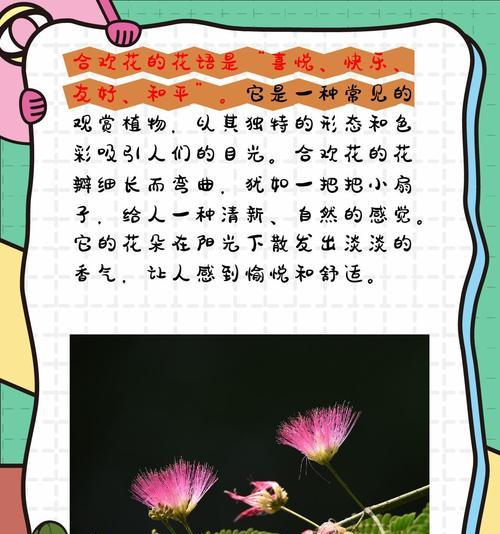 合欢花的花语是“喜悦、快乐、
友好、和平”。它是一种常见的
观赏植物，以其独特的形态和色
彩吸引人们的目光。合欢花的花
瓣细长而弯曲，犹如一把把小扇
子，给人一种清新、自然的感觉。
它的花朵在阳光下散发出淡淡的
香气，让人感到愉悦和舒适。